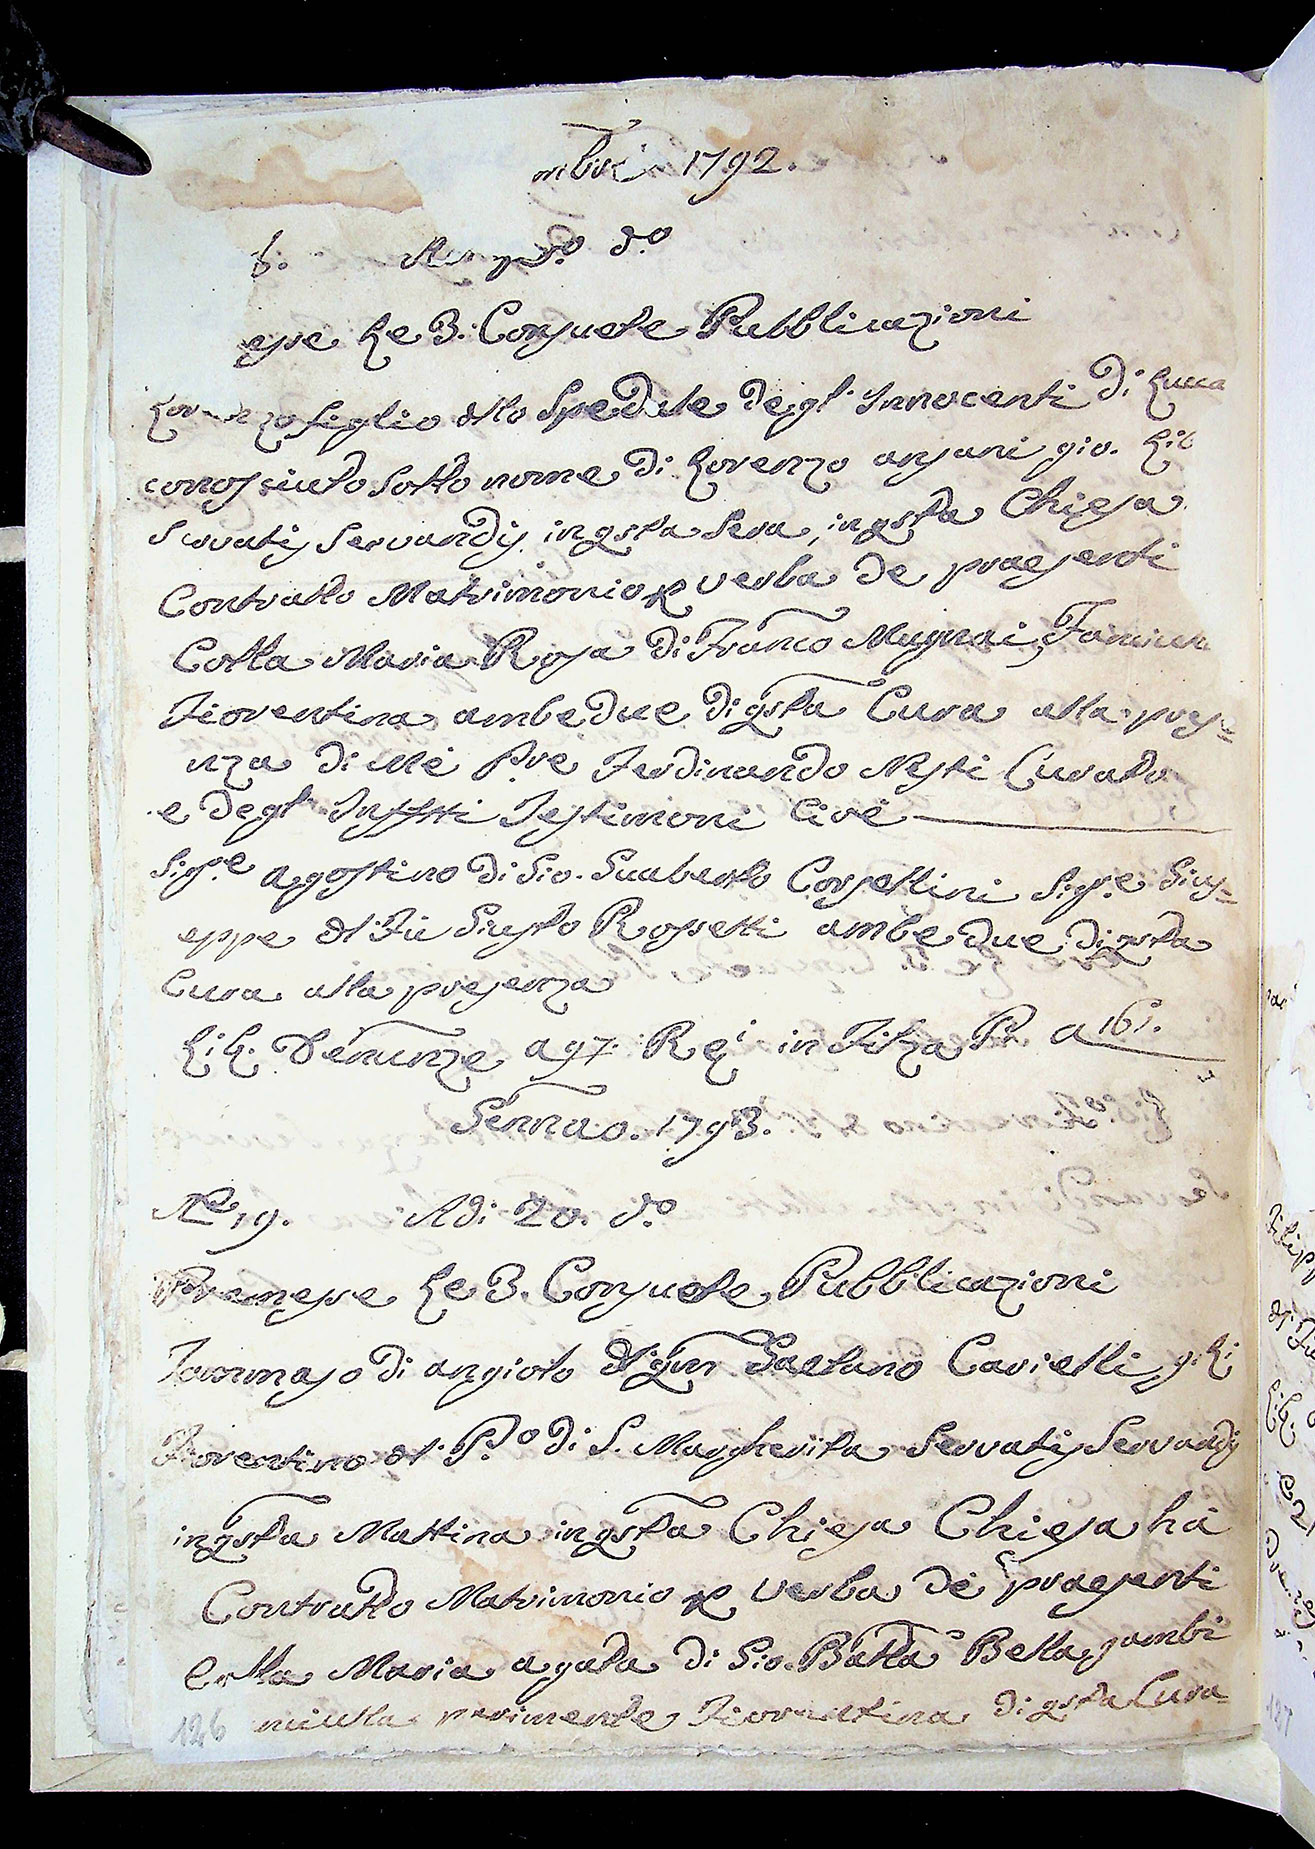 mbre 1792.
8. A d.o
esse Le 3. Consuete Pubblicazioni
Lorenzo figlio dello Spedale degl' Innocenti di Lucca
conosciuto sotto nome di Lorenzo ansani gio. Lib
Servatis Servandis in qsta Sera, in qsta Chiesa
Contratto Matrimonio p verba de praesenti
Colla Maria Rosa di Franco Mugnai Fanciu
Fiorentina ambedue di qsta Cura alla prese=
nza di Me Pre Ferdinando Nesti Curato
e degl' Infftti Testimoni Cioè
Sigre Agostino di Gio. Gualberto Corsellini Sigre Gius=
eppe del Fù Giusto Rossetti ambedue di qsta
Cura alla presenza
Lib. Denunze a 97. Regi in Filza P. a 161.
Gennao. 1793.
No 19. Adi: 20. do
Premesse Le 3. Consuete Pubblicazioni
Tommaso di angiolo Gaetano Cavielli, g. Li
Fiorentino del P.o di S. Margherita Servatis Servandis
in qsta Mattina in qsta Chiesa Chiesa hà
Contratto Matrimonio p verba dè praesenti
Colla Maria agata di Gio. Batta Bella gambi
parimente Fiorentina di qsta Cura
126